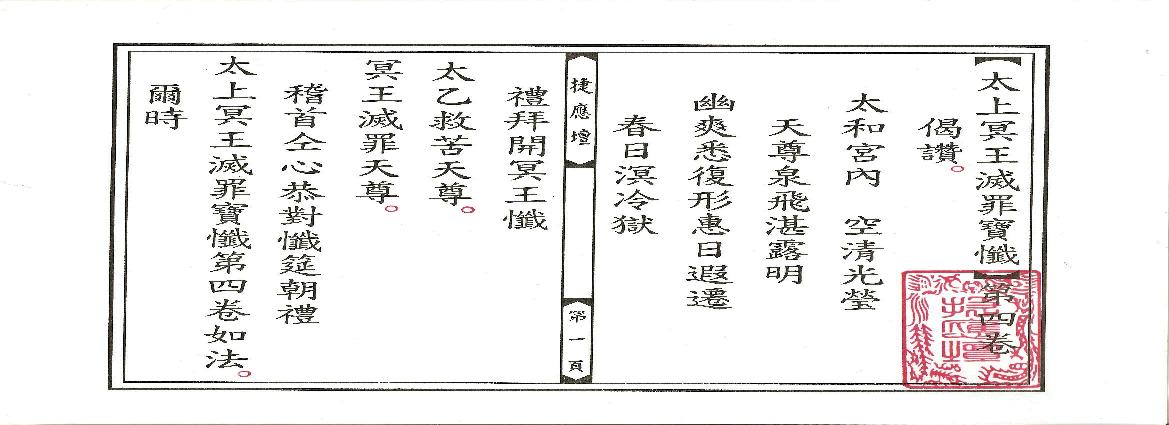 【太上冥王滅罪寶懺】第四卷
偈讚。
太和宮內　空清光瑩
天尊泉飛湛露明
幽爽悉復形惠日遐遷
春日溟冷獄
捷應壇
第一頁
禮拜開冥王懺
太乙救苦天尊。
冥王滅罪天尊。
稽首仝心恭對懺筵朝禮
太上冥王滅罪寶懺第四卷如法。
爾時